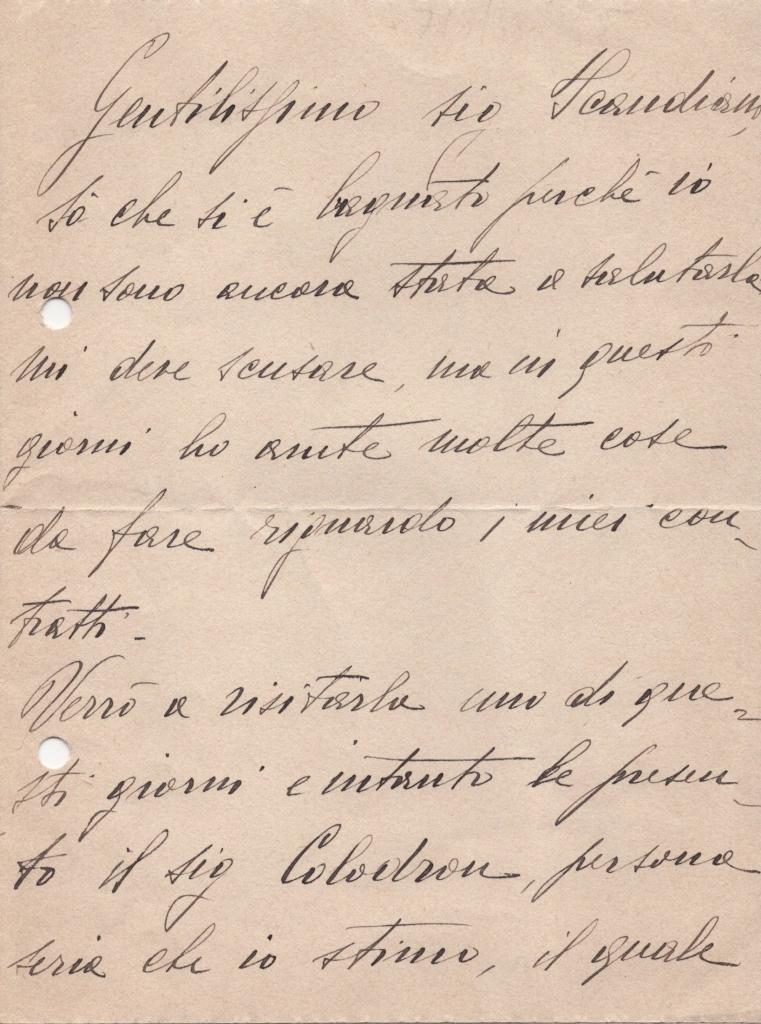 Gentilissimo sig Scandiani,
Sò che si è lagnato perchè io
non sono ancora stata a salutarla
mi deve scusare, ma in questi
giorni ho avute molte cose
da fare riguardo i miei con-
tratti -
Verrò a visitarla uno di que=
sti giorni e intanto le presen-
to il sig Colodron, persona
seria che io stimo, il quale